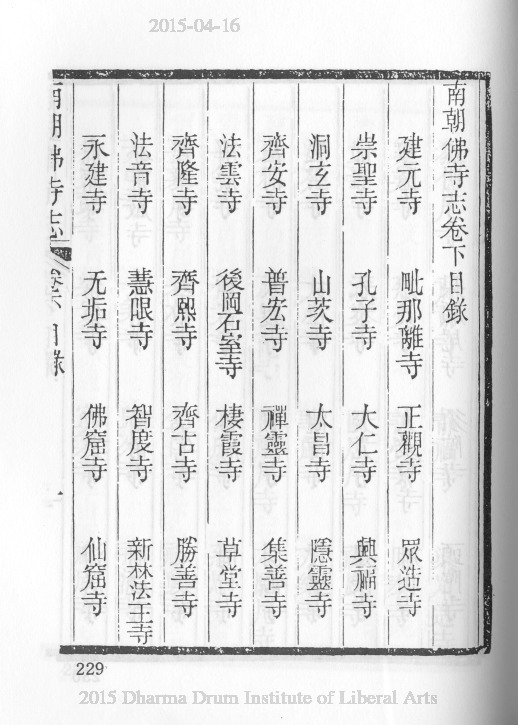 2015-04-16
南朝佛寺志卷下目錄
建元寺 毗那離寺 正觀寺 眾造寺
崇聖寺 孔子寺 大仁寺 興福寺
洞玄寺 山茨寺 太昌寺 隱靈寺
齊安寺 普宏寺 禪靈寺 集善寺
法雲寺 後岡石室寺 棲霞寺 草堂寺
齊隆寺 齊熙寺 齊古寺 勝善寺
法音寺 慧眼寺 智度寺 新林法王寺
永建寺 无垢寺 佛窟寺 仙窟寺
南朝佛寺志 卷下目錄 一
229
2015 Dharma Drum Institute of Liberal Arts